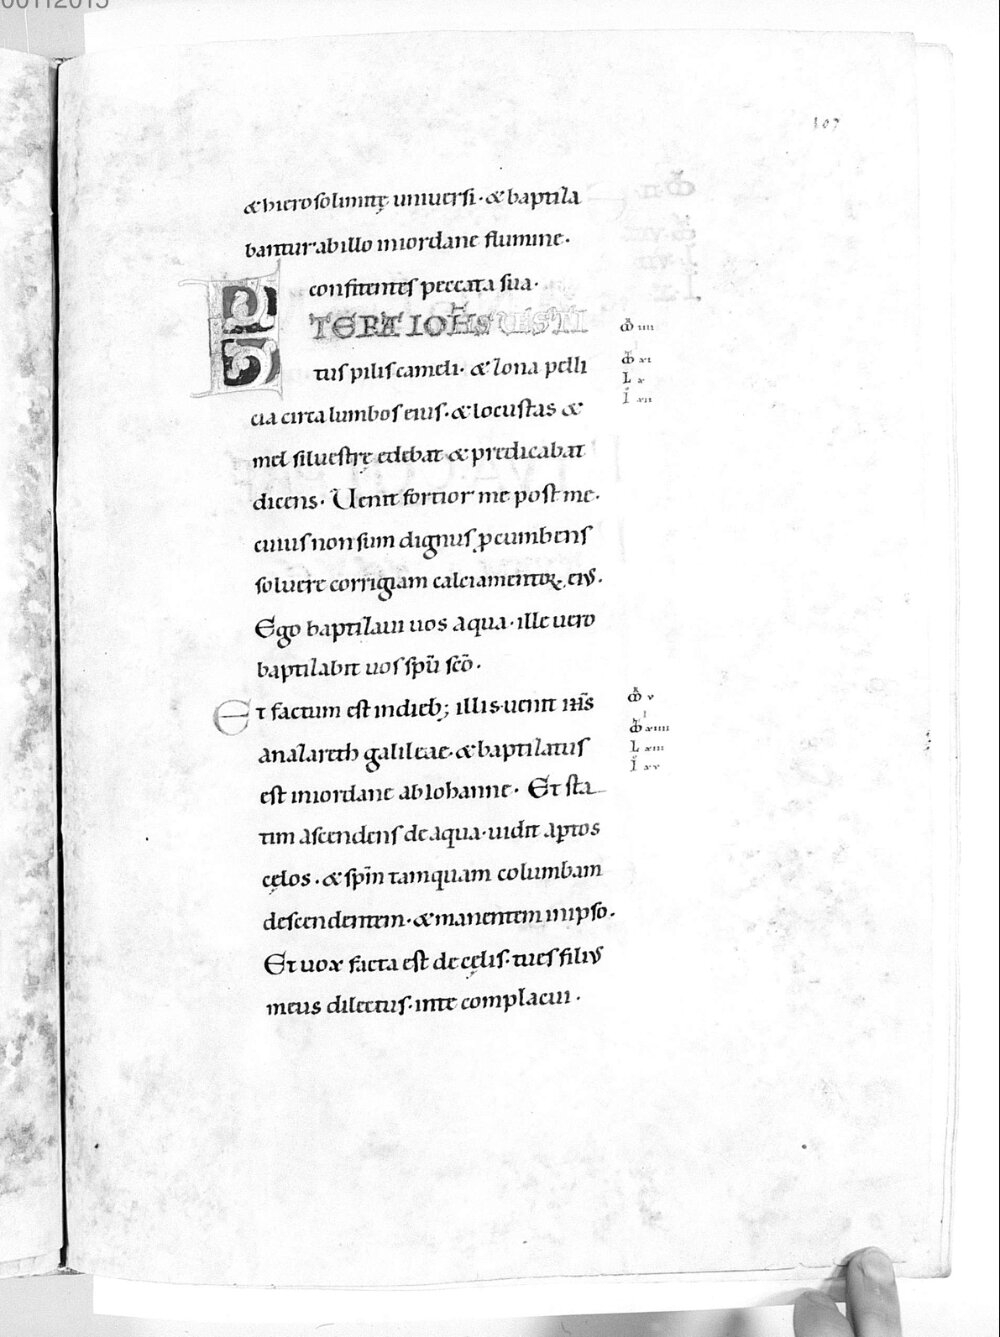 00112015
107
& hierosolimitę uniuersi · & baptiza
bantur ab illo in iordane flumine ·
confitentes peccata sua ·
ET ERAT IOHS UESTI
tus pilis cameli · & zona pelli
cia circa lumbos eius · & locustas &
mel siluestrę edebat & predicabat
dicens · Uenit fortior me post me ·
cuius non sum dignus ꝓcumbens
soluere corrigiam calciamentoꝝ eius ·
Ego baptizaui uos aqua · ille uero
baptizabit uos spū scō ·
Et factum est in dieb; illis uenit ihs̄
a nazareth galileae · & baptizatus
est in iordane ab iohanne · Et sta
tim ascendens de aqua · uidit aꝑtos
cęlos · & spm̄ tamquam columbam
descendentem · & manentem in ipso ·
Et uox facta est de cęlis · tu es filius
meus dilectus · in te complacui ·
M̄ iiii
M̄ xi
L x
I xii
M̄ v
M̄ xiiii
L xiii
I xv